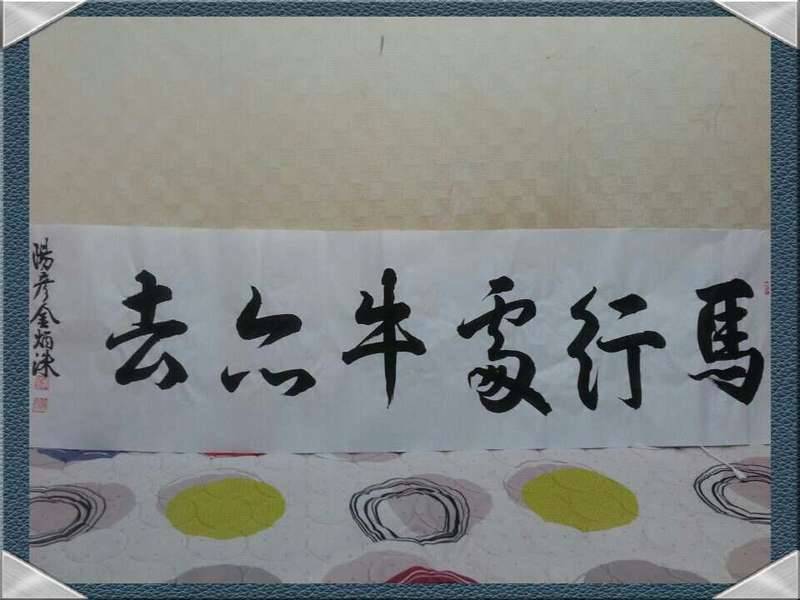 馬行處牛亦去
陽彦金炳洙